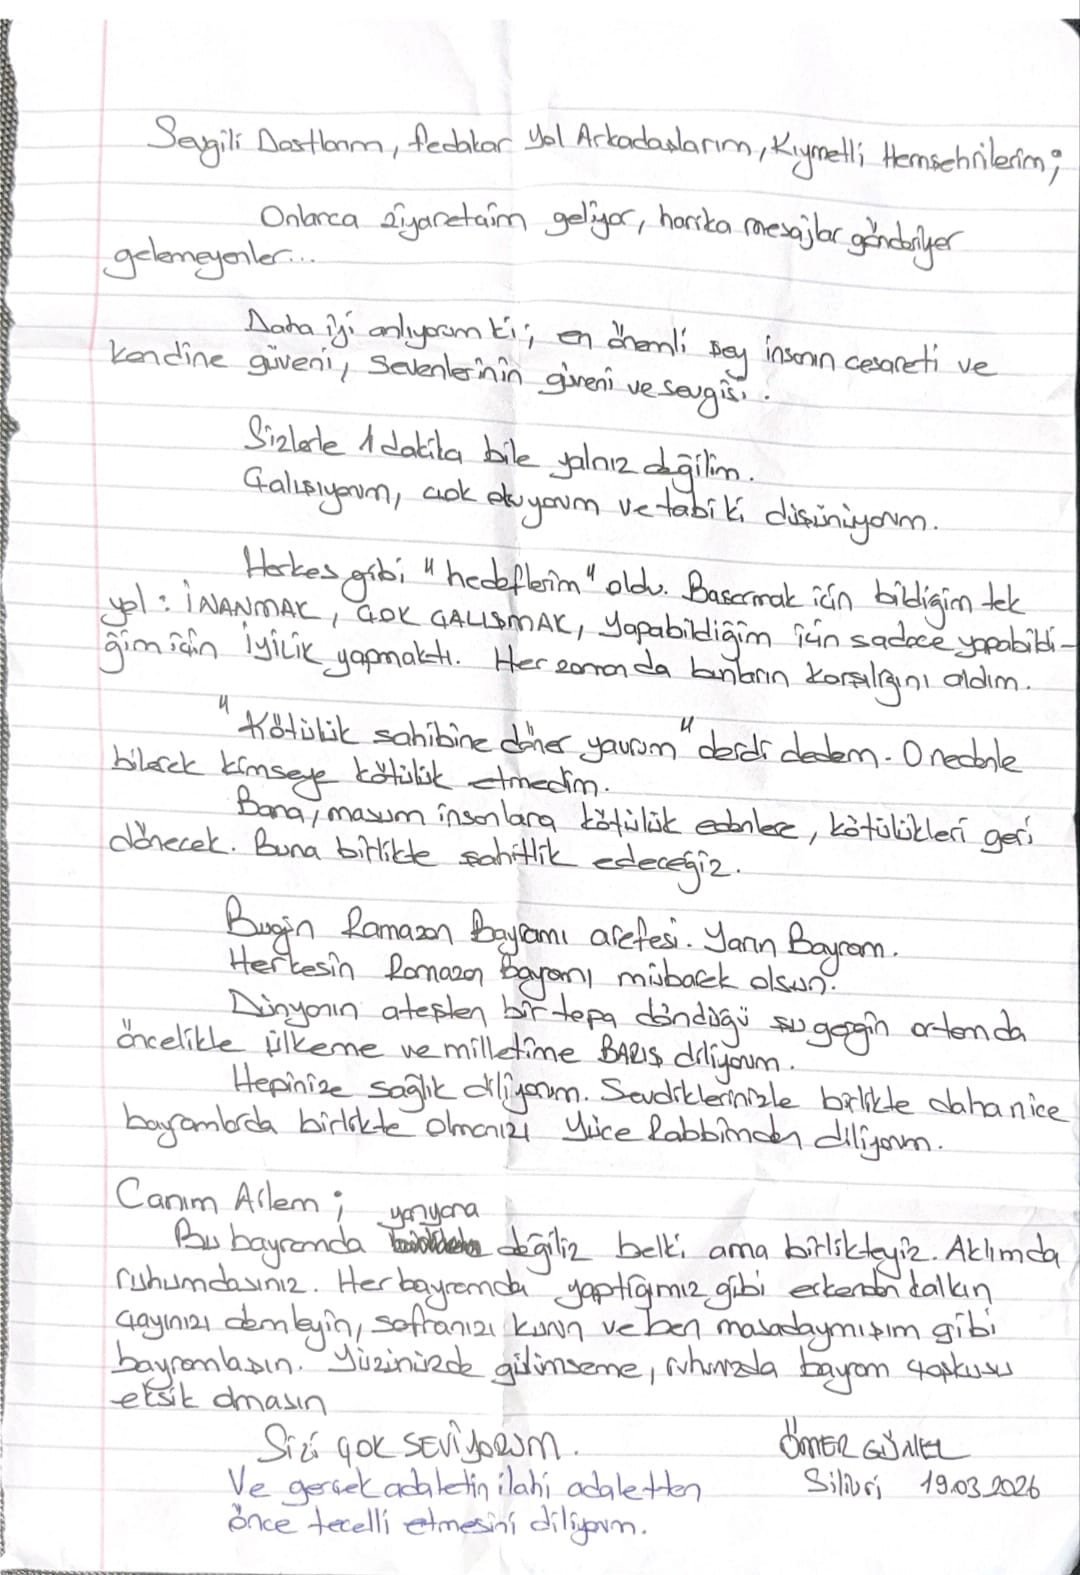 Sevgili Dostlarım, fedakar Yol Arkadaşlarım, Kıymetli Hemşehrilerim;
Onlarca ziyaretçim geliyor, harika mesajlar gönderiyor
gelemeyenler...
Daha iyi anlıyorum ki; en önemli şey insanın cesareti ve
kendine güveni, Sevenlerinin güveni ve sevgisi.
Sizlerle 1 dakika bile yalnız değilim.
Çalışıyorum, çok okuyorum ve tabi ki düşünüyorum.
Herkes gibi "hedeflerim" oldu. Başarmak için bildiğim tek
yol: İNANMAK, ÇOK ÇALIŞMAK, Yapabildiğim için sadece yapabildi-
ğim için İYİLİK yapmaktı. Her zaman da bunların karşılığını aldım.
"Kötülük sahibine döner yavrum" derdi dedem. O nedenle
bilerek kimseye kötülük etmedim.
Bana, masum insanlara kötülük edenlere, kötülükleri geri
dönecek. Buna birlikte şahitlik edeceğiz.
Bugün Ramazan Bayramı arefesi. Yarın Bayram.
Herkesin Ramazan Bayramı mübarek olsun.
Dünyanın ateşten bir topa döndüğü şu gergin ortamda
öncelikle ülkeme ve milletime BARIŞ diliyorum.
Hepinize sağlık diliyorum. Sevdiklerinizle birlikte daha nice
bayramlarda birlikte olmanızı Yüce Rabbimden diliyorum.
Canım Ailem;
yanyana
Bu bayramda değiliz belki ama birlikteyiz. Aklımda
ruhumdasınız. Her bayramda yaptığımız gibi erkenden kalkın
çayınızı demleyin, sofranızı kurun ve ben masadaymışım gibi
bayramlaşın. Yüzünüzde gülümseme, ruhunuzda bayram coşkusu
eksik olmasın
Sizi ÇOK SEVİYORUM.
ÖMER GÜNEL
Ve gerçek adaletin ilahi adaletten
Silivri 19.03.2026
önce tecelli etmesini diliyorum.